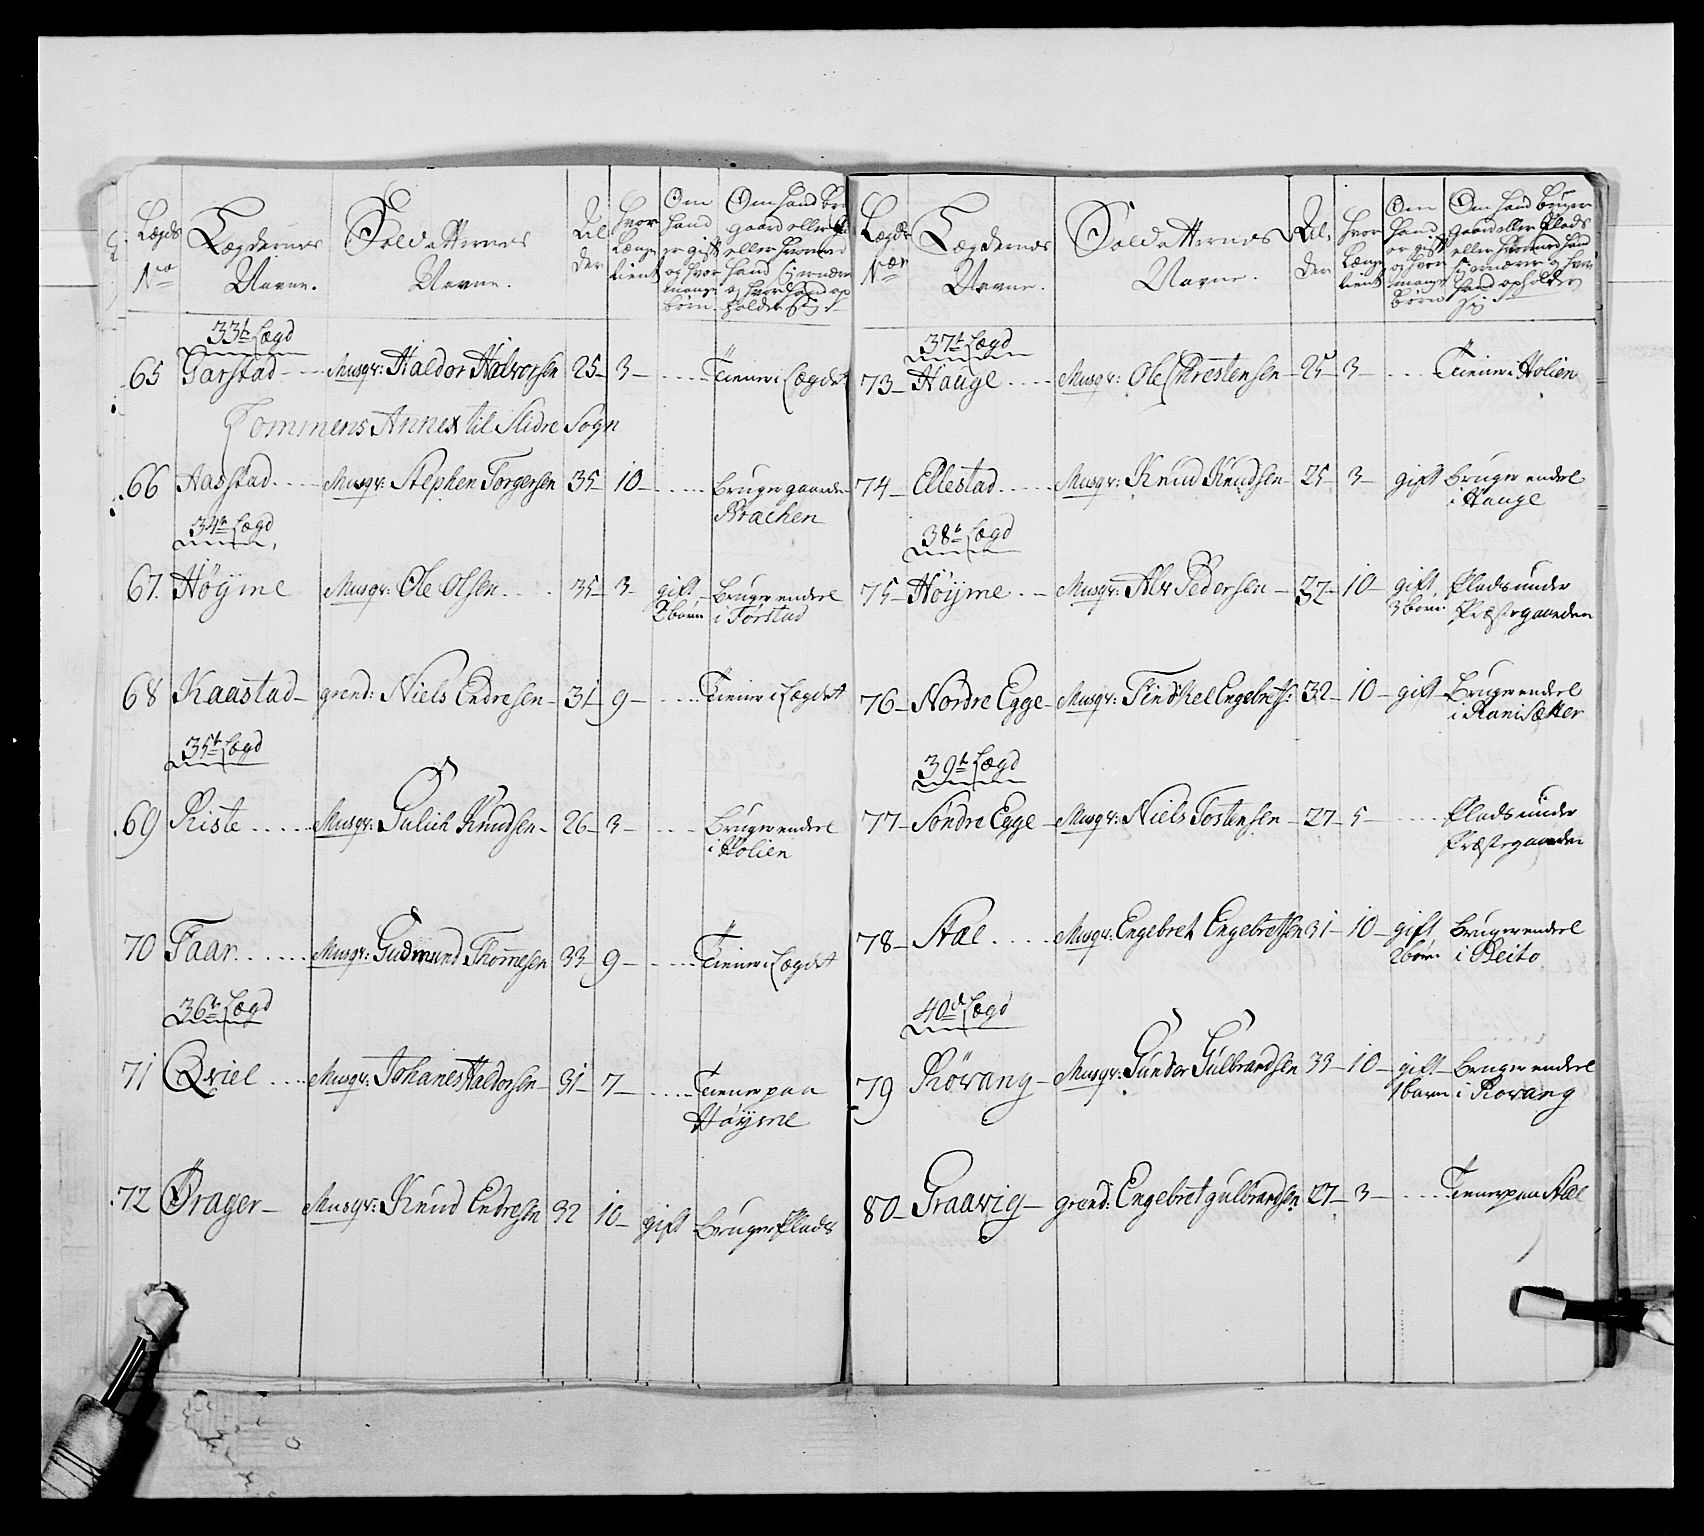 Lægds No
Lægdernes Navne.
Soldatternes Navne.
Alder
hvor Længe tient
Om hand er gift og hvor mange børn
Om hand
gaard eller
eller hvormed
hand sig ernærer
og hvor hand op
holder sig
33te Lægd
65 Garstad - Musqr: Haldor Halvorsen 25 - 3 - Tiener i Lægdet
Lommens Annex til Slidre Sogn
66 Aasstad Musqr: Stephen Torgersen 35 - 10 - Bruger gaarden
Brachen
34te Lægd
67. Höÿme Musqr: Ole Olsen 35 - 3 - gift Bruger endeel
2 børn i Förstad
68 Kaastad - grend: Niels Endresen - 31 - 9 - Tiener i Lægdet
35te Lægd
69 Riste Musqr: Gulich Knudsen - 26 - 3 - Bruger endeel
i Holien
70 Faar Musqr: Gudmund Thommesen 33 - 9 - Tiener i Lægdet
36te Lægd
71 Qviel Musqr: Johanes Haldorsen - 31 - 7 - Tiener paa
Höÿme
72 Örager - Musqr: Knud Endresen 32 10 - gift Bruger Plads
Lægds Nor
Lægdernes Navne.
Soldatternes Navne.
Alder
hvor Længe tient
Om hand er gift og hvor mange børn
Om hand bruger
gaard eller Plads
eller hvormed hand
sig ernærer og hvor
hand opholder
sig
37te Lægd
73 - Hauge Musqr: Ole Chrestensen - 25 - 3 - Tiener i Holien
74 - Ellestad Musqr: Knud Knudsen - 25 - 3 - gift Bruger endeel
i Hauge
38te Lægd
75 - Höÿme Musqr: Alv Pedersen - 37 - 10 - gift Plads under
3 børn Præstegaarden
76 - Nordre Egge - Musqr: Findkel Engebrets: 32 - 10 - gift Bruger endeel
i Ranisætter
39te Lægd
77 - Söndre Egge - Musqr: Niels Tostensen - 27 - 5 - Plads under
Præstegaarden
78 - Hæl Musqr: Engebret Engebretsen 31 - 10 - gift Bruger endeel
2 børn i Beito
40de Lægd
79 Rövang - Musqr: Gundor Gulbrandsen 33 - 10 - gift Bruger endeel
1 barn i Rovang
80 - Graavig - grend: Engebret gulbrandsen 27 - 3 - Tiener paa Hæl